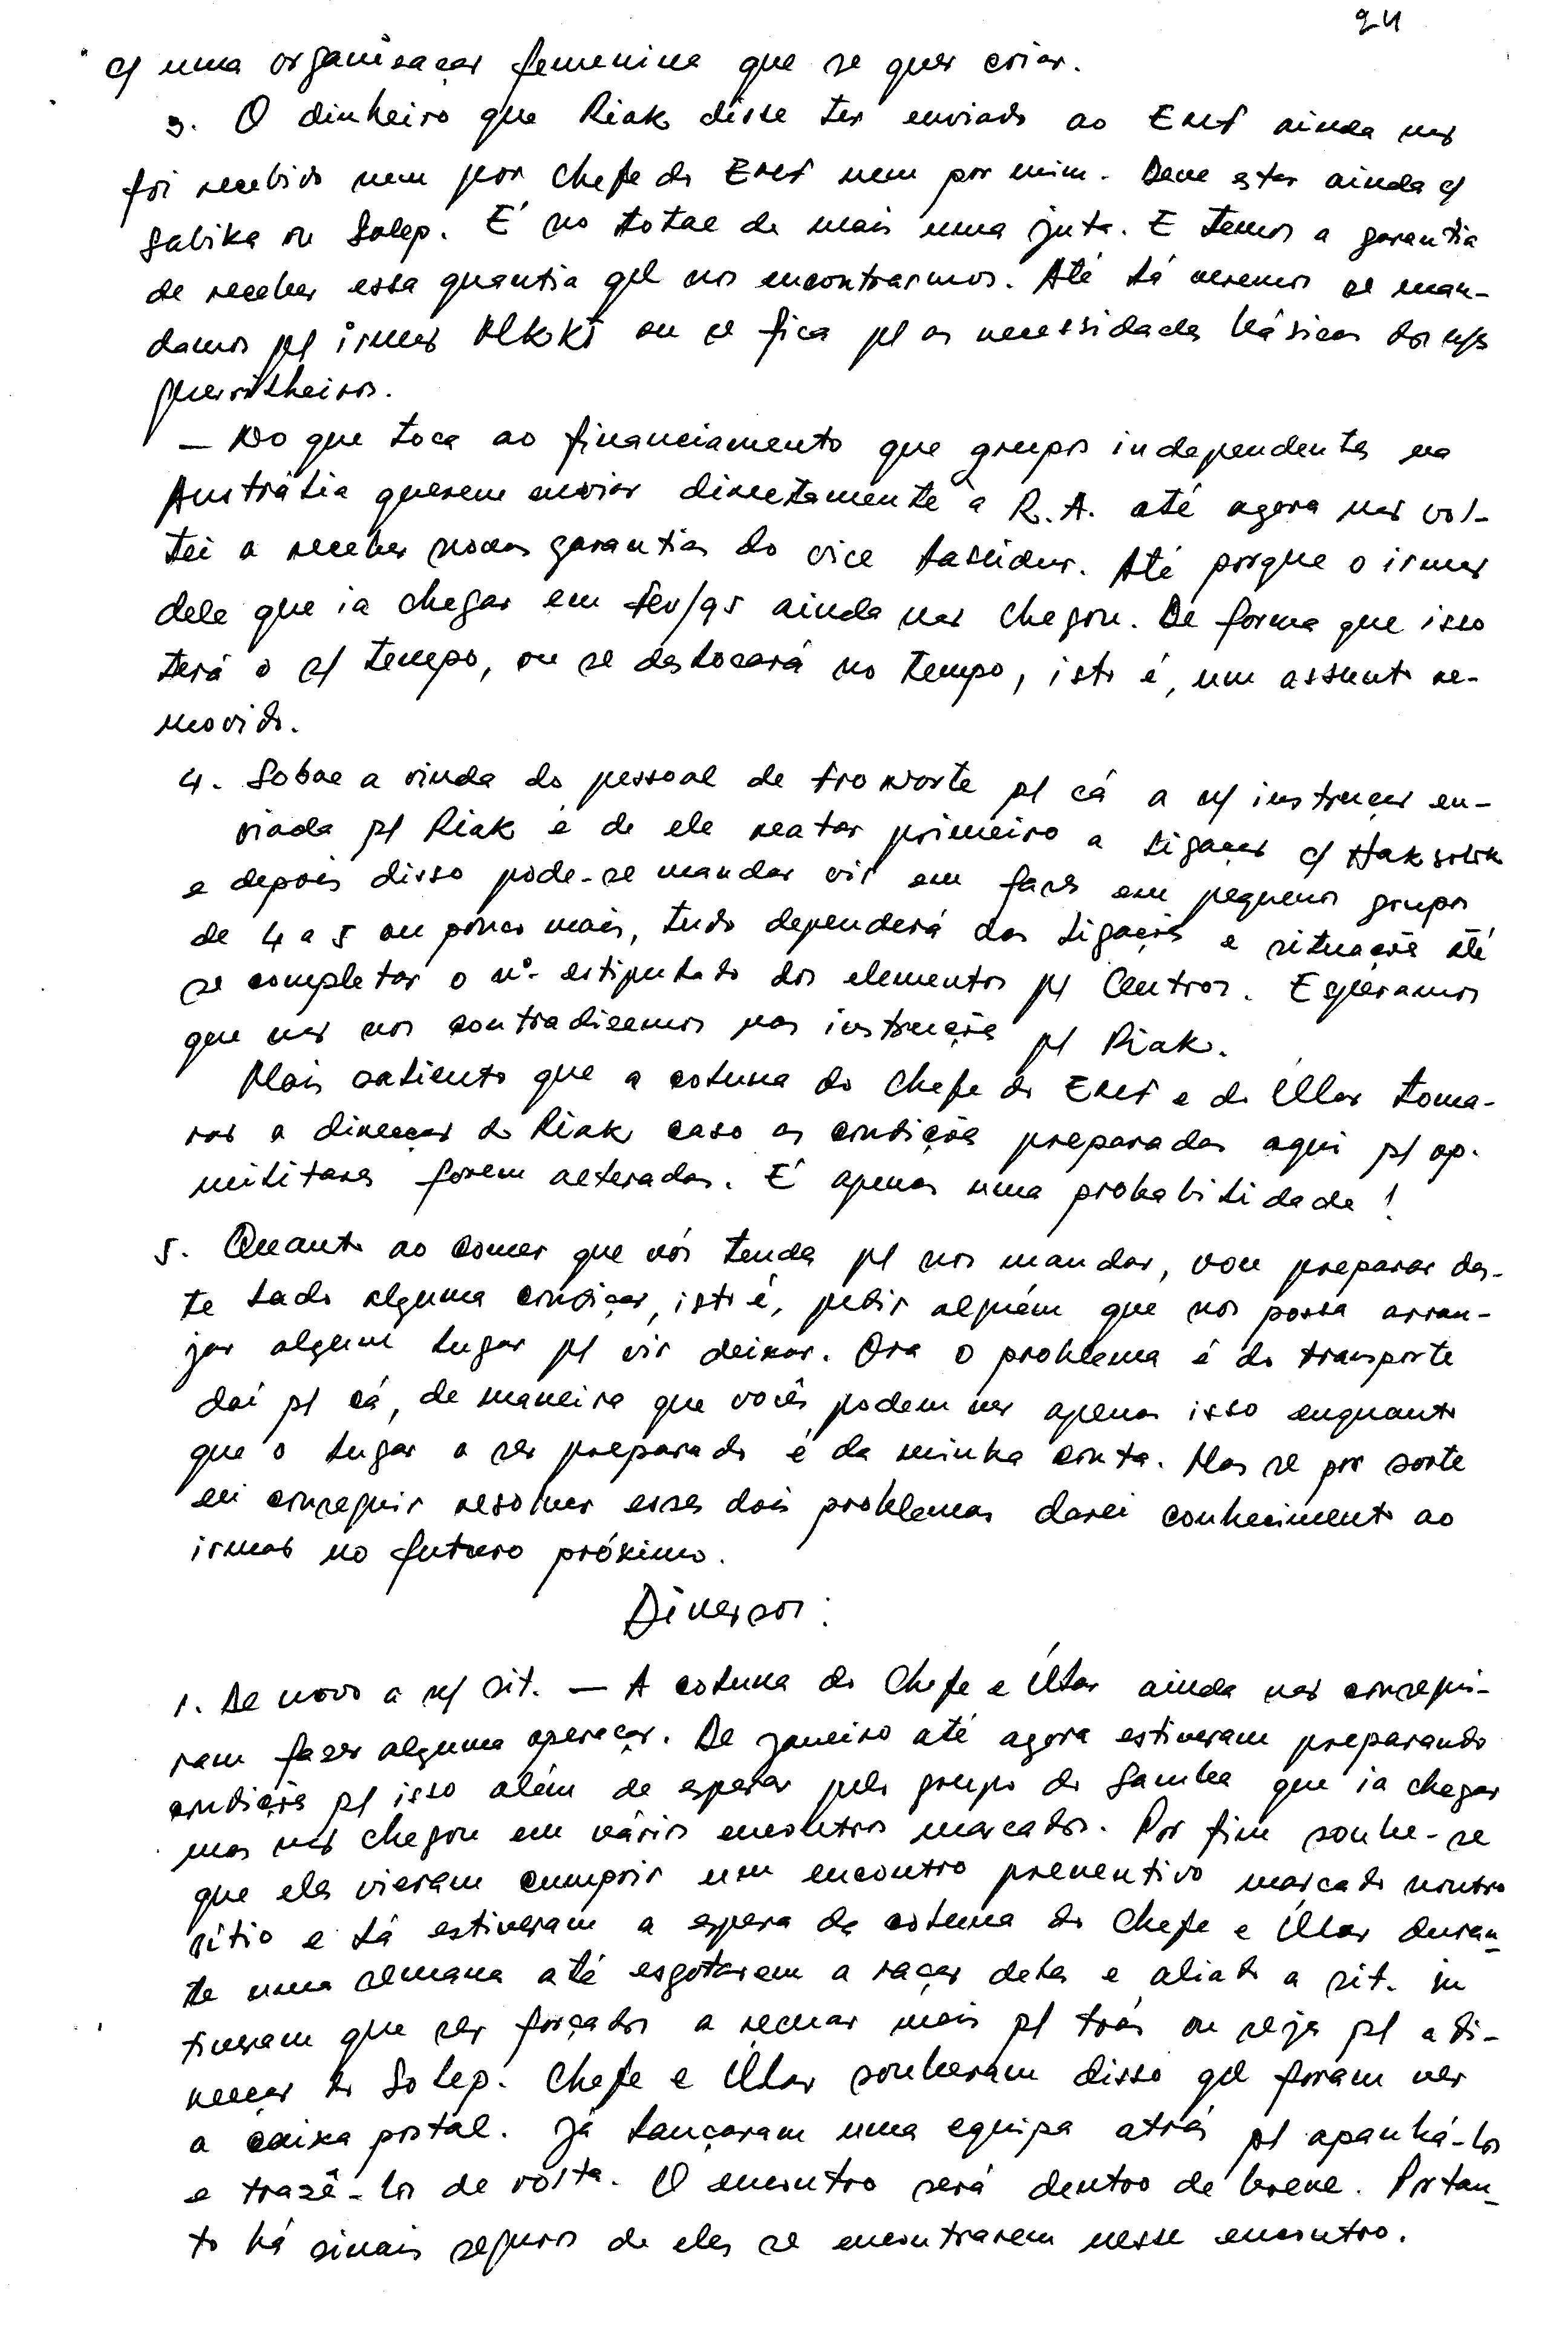 24
c/ uma organisação femenina que se quer criar.
3. O dinheiro que Riak disse ter enviado ao EMF ainda não
foi recebido nem por Chefe do EMF nem por mim. Deve estar ainda c/
Sabika ou Solep. É no total de mais uma juta. E temos a garantia
de receber essa quantia qd nos encontrarmos. Até lá veremos se man-
damos p/ irmão MKKI ou se fica p/ as necessidades básicas dos n/s
guerrilheiros.
— No que toca ao financiamento que grupos independentes na
Austrália querem enviar directamente à R.A. até agora não vol-
tei a receber novas garantias do vice Lasidur. Até porque o irmão
dele que ia chegar em Fev/95 ainda não chegou. De forma que isso
terá o s/ tempo, ou se deslocará no tempo, isto é, um assunto re-
movido.
4. Sobre a vinda do pessoal de Fronorte p/ cá a n/ instrução en-
viada p/ Riak é de ele reatar primeiro a ligação c/ Haksolok
e depois disso pode-se mandar vir em fases em pequenos grupos
de 4 a 5 ou pouco mais, tudo dependerá das ligações e situações até
se completar o nº estipulado dos elementos p/ Centros. Esperamos
que não nos contradissemos nas instruções p/ Riak.
Mais saliento que a coluna do Chefe do EMF e de Ular toma-
rão a direcção de Riak caso as condições preparadas aqui p/ op.
militares forem alteradas. É apenas uma probabilidade!
5. Quanto ao comer que vós tendes p/ nos mandar, vou preparar des-
te lado alguma condição, isto é, pedir alguém que nos possa arran-
jar algum lugar p/ vir deixar. Ora o problema é do transporte
daí p/ cá, de maneira que vocês podem ver apenas isso enquanto
que o lugar a ser preparado é da minha conta. Mas se por sorte
eu conseguir resolver esses dois problemas darei conhecimento ao
irmão no futuro próximo.
Diversos:
1. De novo a n/ sit. — A coluna do Chefe e Ular ainda não consegui-
ram fazer alguma operação. De Janeiro até agora estiveram preparando
condições p/ isso além de esperar pelo grupo do Samba que ia chegar
mas não chegou em vários encontros marcados. Por fim soube-se
que eles vieram cumprir um encontro preventivo marcado noutro
sítio e lá estiveram a espera da coluna do Chefe e Ular duran-
te uma semana até esgotarem a ração deles e aliado a sit. in
tiveram que ser forçados a recuar mais p/ trás ou seja p/ a di-
recção de Solep. Chefe e Ular souberam disso qd foram ver
a caixa postal. Já lançaram uma equipa atrás p/ apanhá-los
e trazê-los de volta. O encontro será dentro de breve. Portan-
to há sinais seguros de eles se encontrarem nesse encontro.